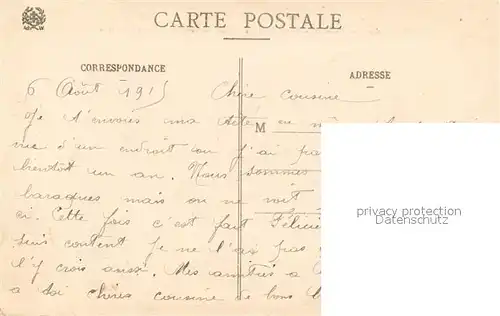 CARTE POSTALE
CORRESPONDANCE
ADRESSE
6 Août 1915 Chère cousine
Je t'envoies ma
M
me d'un endroit ou j'ai
bientôt un an. Nous sommes
baraques mais on ne voit
ci. Cette fois c'est fait
suis content je ne l'ai pas
l'y crois aussi. Mes amitiés a
a toi chère cousine de bons
privacy protection
Datenschutz